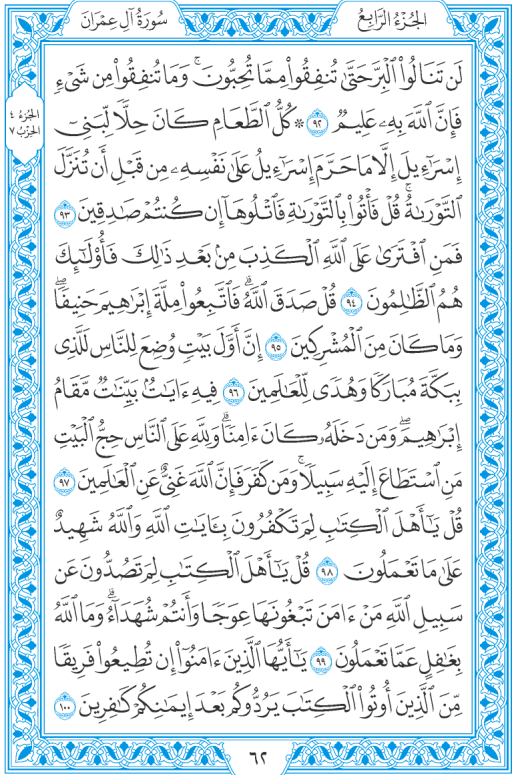 الجُزْءُ الرَّابِعُ
سُورَةُ آلِ عِمْرَانَ
لَن تَنَالُوا۟ ٱلْبِرَّ حَتَّىٰ تُنفِقُوا۟ مِمَّا تُحِبُّونَ ۚ وَمَا تُنفِقُوا۟ مِن شَىْءٍ
فَإِنَّ ٱللَّهَ بِهِۦ عَلِيمٌ ٩٢ ۞ كُلُّ ٱلطَّعَامِ كَانَ حِلًّا لِّبَنِىٓ
إِسْرَٰٓءِيلَ إِلَّا مَا حَرَّمَ إِسْرَٰٓءِيلُ عَلَىٰ نَفْسِهِۦ مِن قَبْلِ أَن تُنَزَّلَ
ٱلتَّوْرَىٰةُ ۗ قُلْ فَأْتُوا۟ بِٱلتَّوْرَىٰةِ فَٱتْلُوهَآ إِن كُنتُمْ صَٰدِقِينَ ٩٣
فَمَنِ ٱفْتَرَىٰ عَلَى ٱللَّهِ ٱلْكَذِبَ مِنۢ بَعْدِ ذَٰلِكَ فَأُو۟لَٰٓئِكَ
هُمُ ٱلظَّٰلِمُونَ ٩٤ قُلْ صَدَقَ ٱللَّهُ ۗ فَٱتَّبِعُوا۟ مِلَّةَ إِبْرَٰهِيمَ حَنِيفًا ۖ
وَمَا كَانَ مِنَ ٱلْمُشْرِكِينَ ٩٥ إِنَّ أَوَّلَ بَيْتٍ وُضِعَ لِلنَّاسِ لَلَّذِى
بِبَكَّةَ مُبَارَكًا وَهُدًى لِّلْعَٰلَمِينَ ٩٦ فِيهِ ءَايَٰتٌۢ بَيِّنَٰتٌ مَّقَامُ
إِبْرَٰهِيمَ ۖ وَمَن دَخَلَهُۥ كَانَ ءَامِنًا ۗ وَلِلَّهِ عَلَى ٱلنَّاسِ حِجُّ ٱلْبَيْتِ
مَنِ ٱسْتَطَاعَ إِلَيْهِ سَبِيلًا ۚ وَمَن كَفَرَ فَإِنَّ ٱللَّهَ غَنِىٌّ عَنِ ٱلْعَٰلَمِينَ ٩٧
قُلْ يَٰٓأَهْلَ ٱلْكِتَٰبِ لِمَ تَكْفُرُونَ بِـَٔايَٰتِ ٱللَّهِ وَٱللَّهُ شَهِيدٌ
عَلَىٰ مَا تَعْمَلُونَ ٩٨ قُلْ يَٰٓأَهْلَ ٱلْكِتَٰبِ لِمَ تَصُدُّونَ عَن
سَبِيلِ ٱللَّهِ مَنْ ءَامَنَ تَبْغُونَهَا عِوَجًا وَأَنتُمْ شُهَدَآءُ ۗ وَمَا ٱللَّهُ
بِغَٰفِلٍ عَمَّا تَعْمَلُونَ ٩٩ يَٰٓأَيُّهَا ٱلَّذِينَ ءَامَنُوٓا۟ إِن تُطِيعُوا۟ فَرِيقًا
مِّنَ ٱلَّذِينَ أُوتُوا۟ ٱلْكِتَٰبَ يَرُدُّوكُم بَعْدَ إِيمَٰنِكُمْ كَٰفِرِينَ ١٠٠
الجُزءُ ٤
الحِزْبُ ٧
٦٢